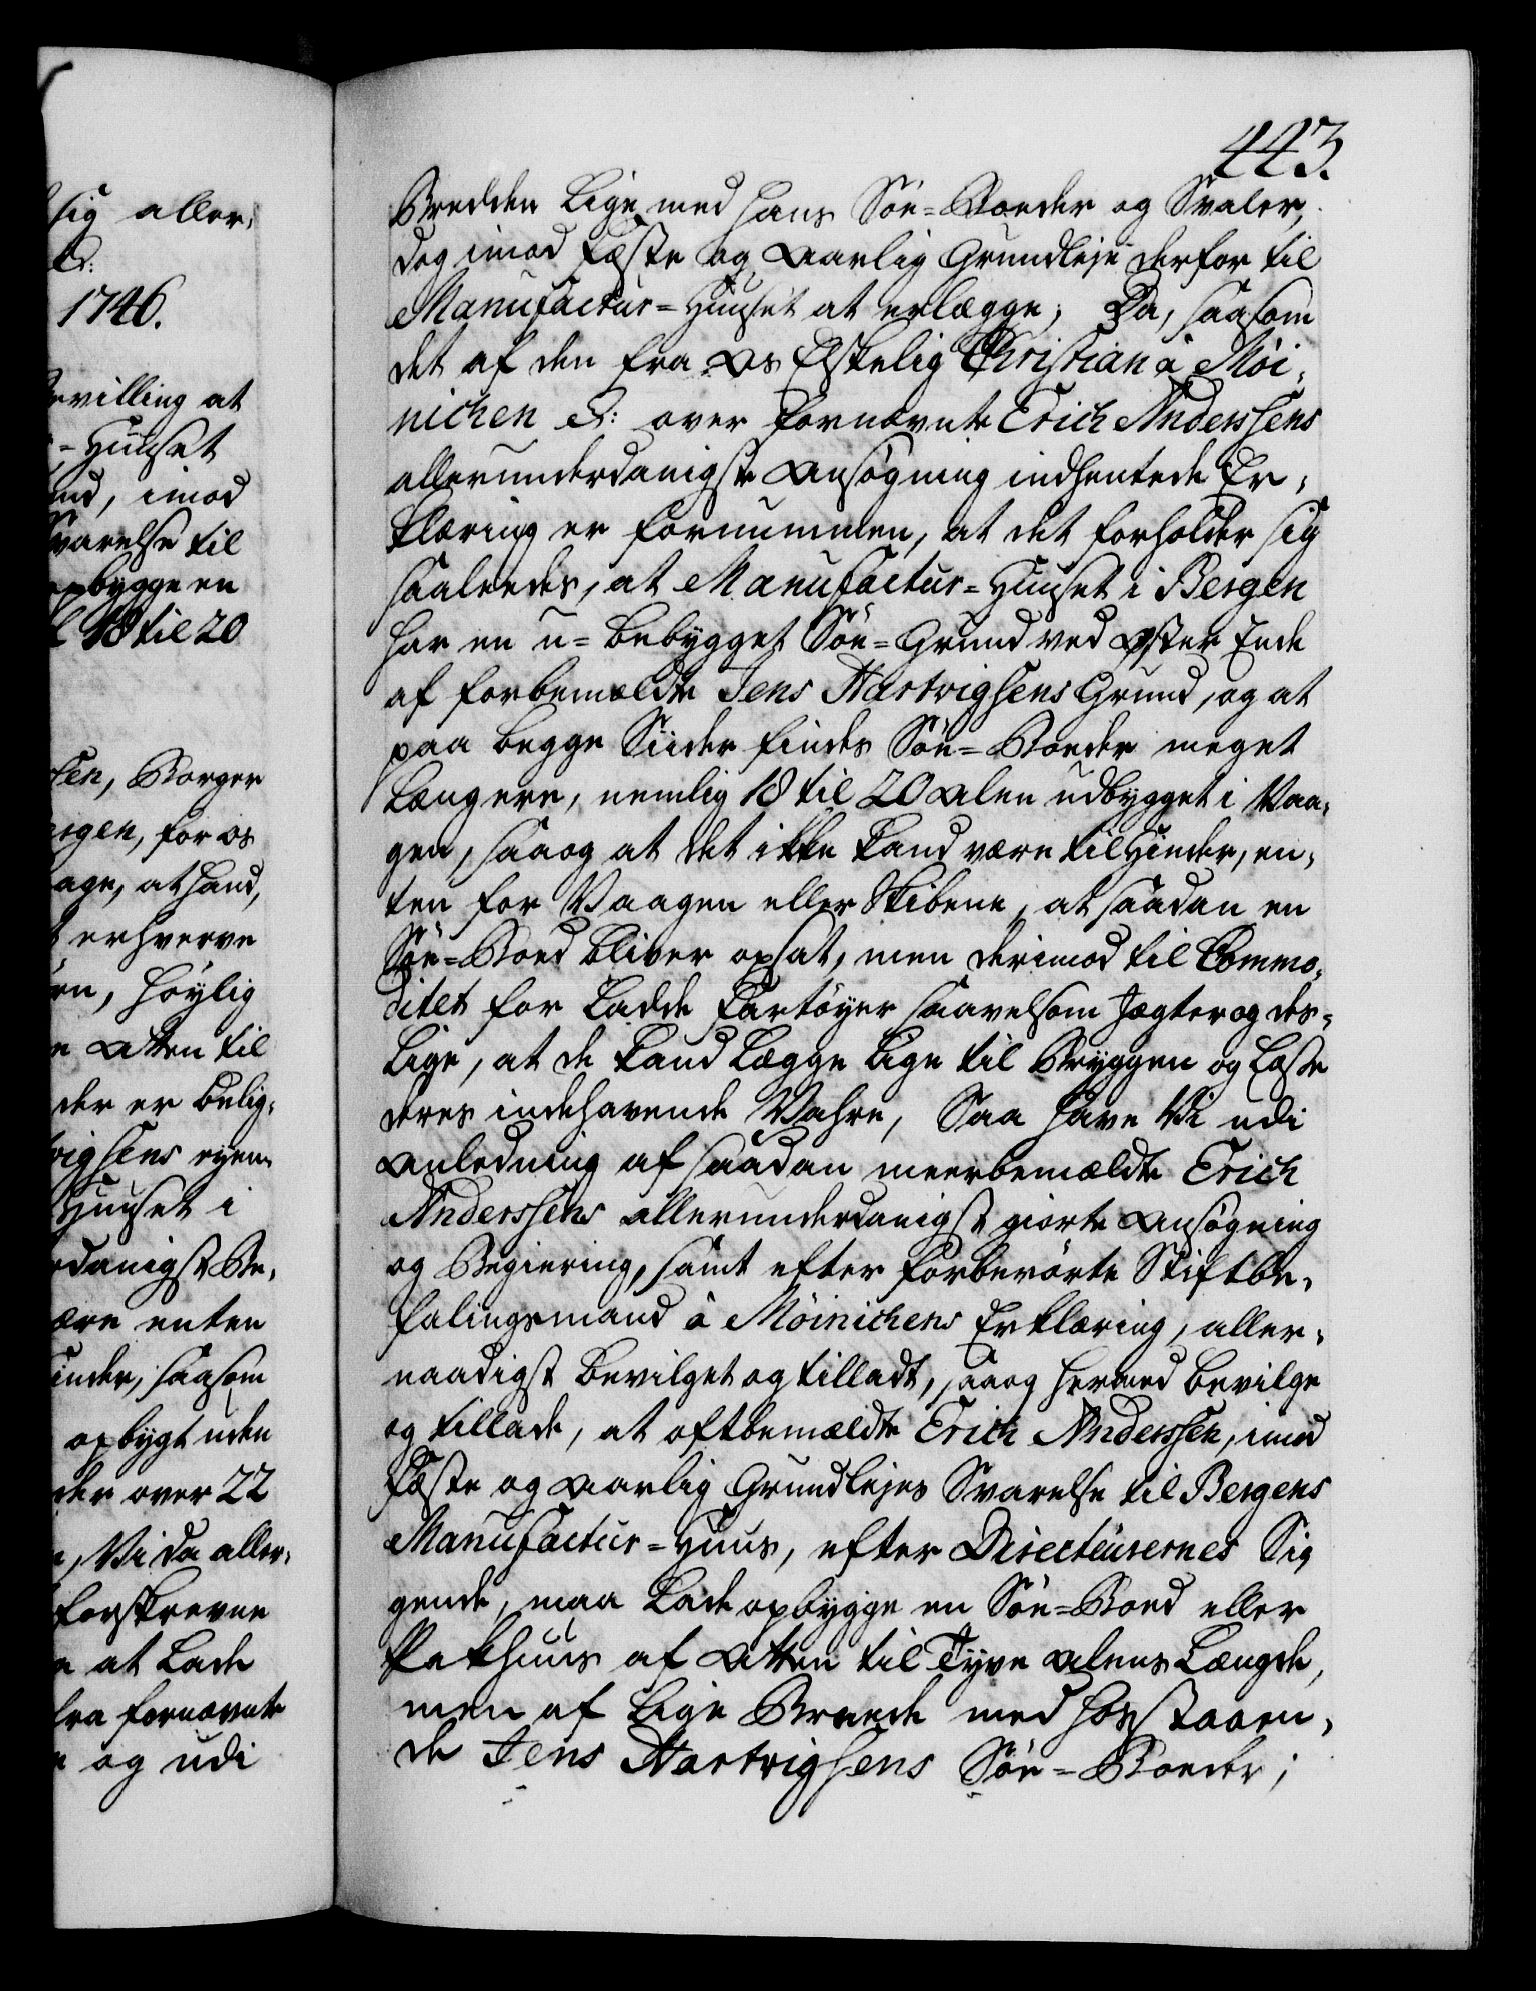 sig aller-
&:
1746.
Bevilling at
-Huuset
end, imod
Svarelse til
opbygge en
18 til 20
sen, Borger
Bergen, for os
age, at hand,
t erhverve
rn, höylig
e Atten til
der er belig-
vigsens eyen-
Huuset i
danigst Be-
ære enten
inder, saasom
opbygt uden
der over 22
, Vi da aller-
forskrevne
e at lade
fra fornævnte
e og udi
443.
Bredden lige med hans Söe-Boeder og Svaler,
dog imod Fæste og Aarlig Grundleje derfor til
Manufactur-Huuset at erlægge; Da, saasom
det af den fra Os Elskelig Christian â Möi-
nichen &: over fornævnte Erich Anderssens
allerunderdanigste Ansögning indhentede Er-
klæring er fornummen, at det forholder sig
saaledes, at Manufactur-Huuset i Bergen
har en u-bebygget Söe-Grund ved Öster Ende
af forbemeldte Jens Hartvigsens Grund, og at
paa begge Siider findes Söe-Boeder meget
længere, nemlig 18 til 20 Alen udbygget i Vaa-
gen, saa og at det ikke kand være til Hinder, en-
ten for Vaagen eller Skibene, at saadan en
Söe-Boed bliver opsat, men derimod til Commo-
ditet for ladde Fartöyer saavelsom Jægter og des-
lige, at de kand lægge lige til Bryggen og losse
deres indehavende Vahre, Saa have Vi udi
Anledning af saadan meerbemældte Erich
Anderssens allerunderdanigst giorte Ansögning
og Begiering, samt efter forberörte Stiftbe-
falingsmand â Möinichens Erklæring, aller-
naadigst bevilget og tilladt, saa og hermed bevilge
og tillade, at oftbemældte Erich Anderssen, imod
Fæste og Aarlig Grundlejes Svarelse til Bergens
Manufactur-Huus, efter Directeurernes Sig
gende, maa lade opbygge en Söe-Boed eller
Pakhuus af Atten til Tyve Alens Længde,
men af lige Breede med hosstaaen-
de Jens Hartvigsens Söe-Boeder;